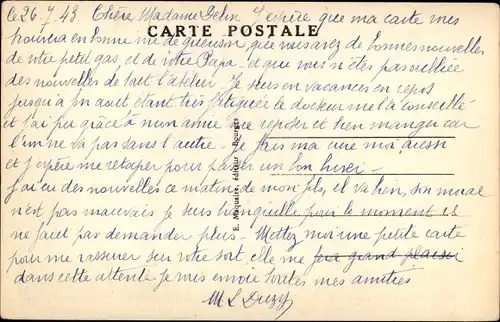 le 26.7.43 Chère Madame Gelin J'espère que ma carte
CARTE POSTALE
en bonne voie de guérison, que vous avez de bonnes nouvelles
de votre petit gas, et de votre Papa - et que vous n'êtes pas oubliée
des nouvelles de tout l'atelier. Je suis en vacances en repos
jusqu'à fin août étant très fatiguée le docteur me l'a conseillé
et j'ai pu grâce à mon amie me reposer et bien manger car
l'un ne va pas sans l'autre. Je pris ma cure moi aussi
et j'espère me retaper pour passer un bon hiver -
j'ai eu des nouvelles ce matin de mon fils, il va bien, son moral
n'est pas mauvais je suis tranquille pour le moment il
ne faut pas demander plus - Mettez moi une petite carte
pour me rassurer sur votre sort, elle me fera grand plaisir
dans cette attente je vous envoie toutes mes amitiés
M L
E. Maquaire, éditeur, Bourges